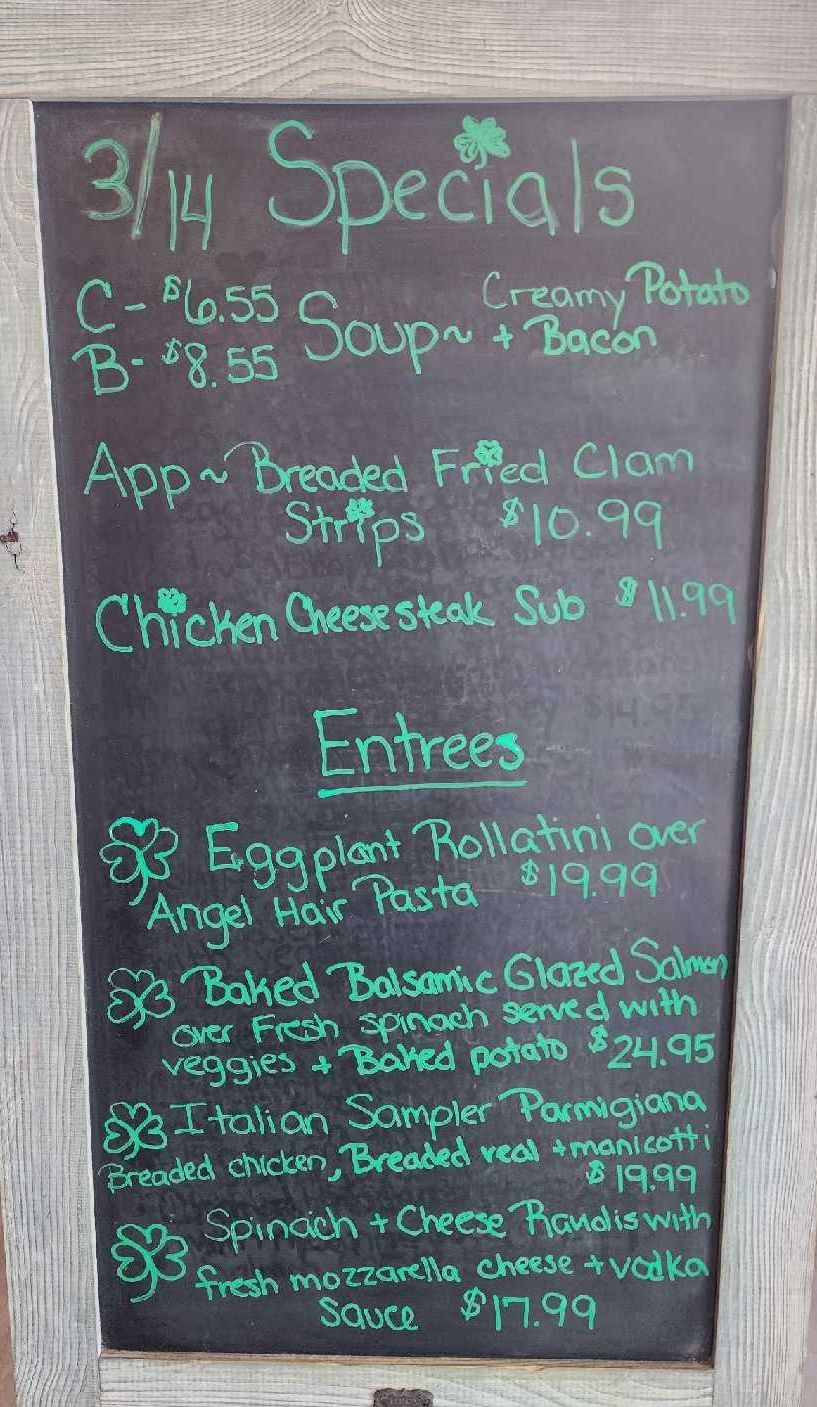 3/14 Specials
C - $6.55 Soup ~ Creamy Potato
B - $8.55 + Bacon
App ~ Breaded Fried Clam
Strips $10.99
Chicken Cheesesteak Sub $11.99
Entrees
Eggplant Rollatini over
Angel Hair Pasta $19.99
Baked Balsamic Glazed Salmon
over Fresh spinach served with
veggies + Baked potato $24.95
Italian Sampler Parmigiana
Breaded chicken, Breaded veal + manicotti
$19.99
Spinach + Cheese Raviolis with
fresh mozzarella cheese + vodka
Sauce $17.99